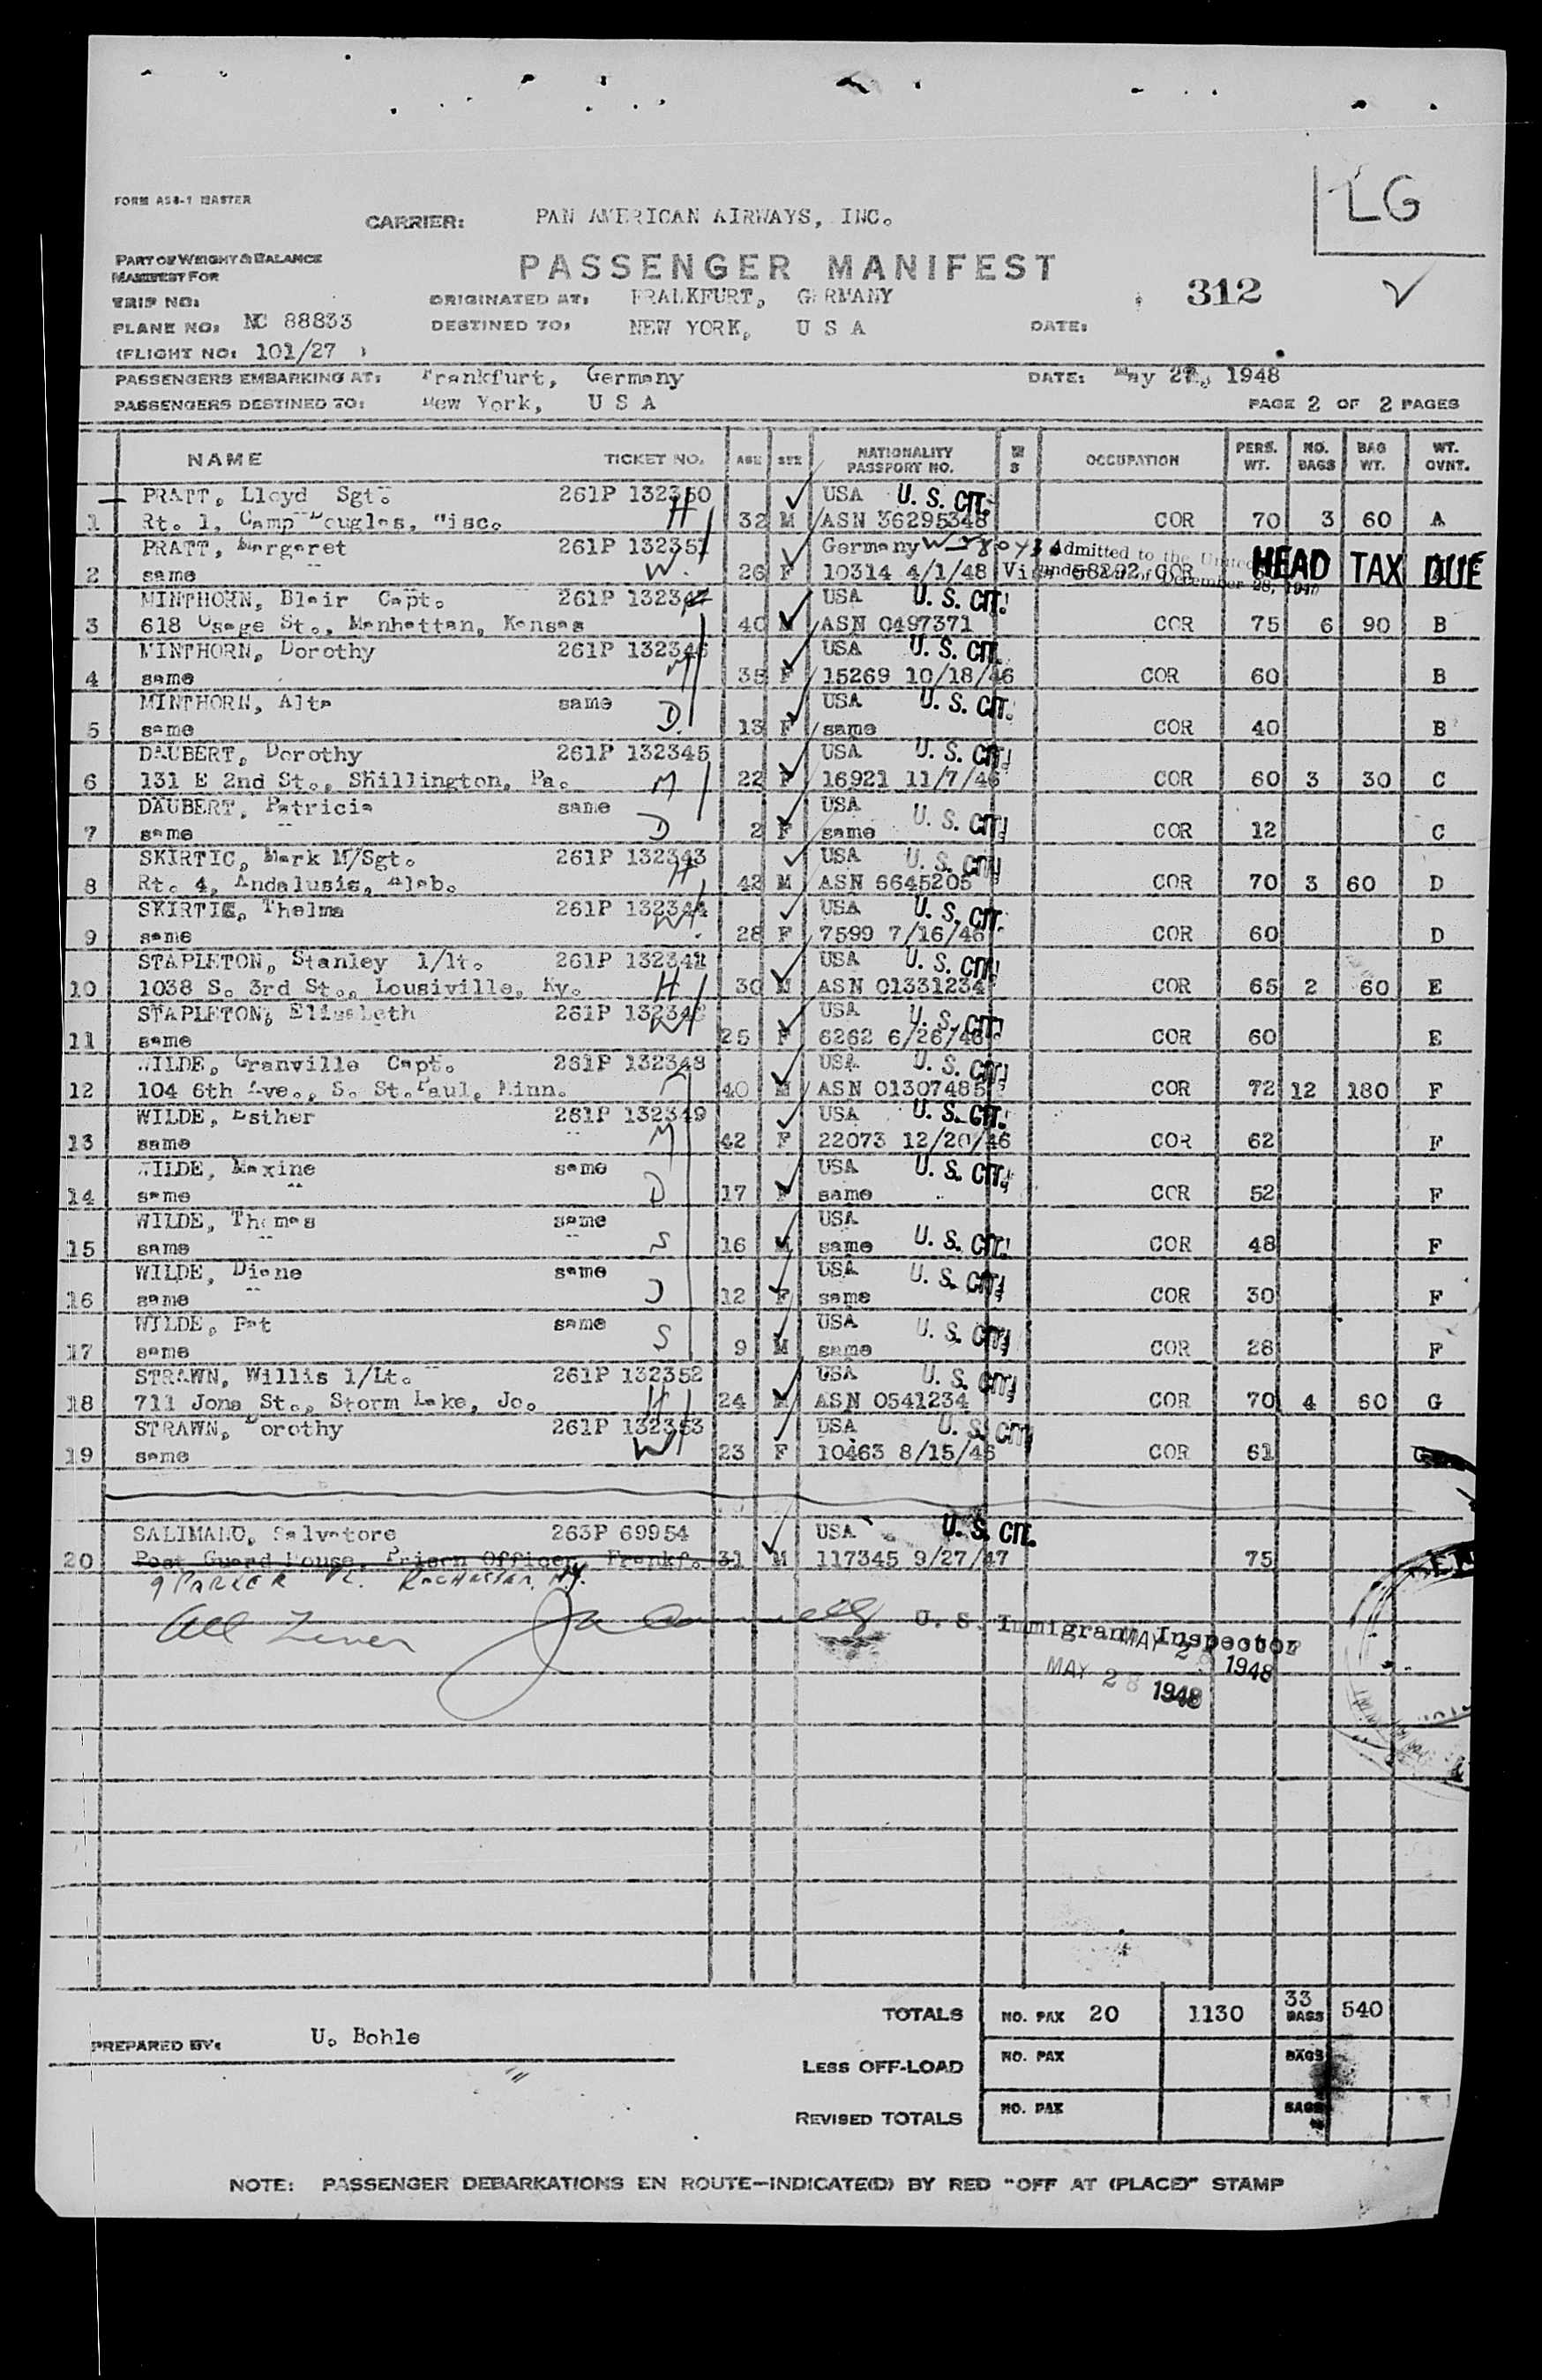 LG
FORM AS8-1 MASTER
CARRIER: PAN AMERICAN AIRWAYS, INC.
PART OF WEIGHT & BALANCE
MANIFEST FOR
PASSENGER MANIFEST
312
TRIP NO: ORIGINATED AT: FRANKFURT, GERMANY
PLANE NO: NC 88833 DESTINED TO: NEW YORK, U S A DATE:
(FLIGHT NO: 101/27 )
PASSENGERS EMBARKING AT: Frankfurt, Germany DATE: May 27, 1948
PASSENGERS DESTINED TO: New York, U S A PAGE 2 OF 2 PAGES
NAME TICKET NO. AGE SEX NATIONALITY PASSPORT NO. OCCUPATION PERS. WT. NO. BAGS BAG WT. WT. OVNT.
PRATT, Lloyd Sgt. 261P 132350 USA U. S. CIT.
1 Rt. 1, Camp Douglas, Wisc. H 32 M ASN 36295348 COR 70 3 60 A
PRATT, Margaret 261P 132351 Germany Admitted to the United
2 same W. 26 F 10314 4/1/48 Visa 58292 COR December 28, 1945 HEAD TAX DUE
MINTHORN, Blair Capt. 261P 132347 USA U. S. CIT.
3 618 Osage St., Manhattan, Kansas 40 M ASN 0497371 COR 75 6 90 B
MINTHORN, Dorothy 261P 132346 USA U. S. CIT.
4 same M 35 F 15269 10/18/46 COR 60 B
MINTHORN, Alta same USA U. S. CIT.
5 same D. 13 F same COR 40 B
DAUBERT, Dorothy 261P 132345 USA U. S. CIT.
6 131 E 2nd St., Shillington, Pa. M 22 F 16921 11/7/46 COR 60 3 30 C
DAUBERT, Patricia same USA U. S. CIT.
7 same D 2 F same COR 12 C
SKIRTIC, Mark M/Sgt. 261P 132343 USA U. S. CIT.
8 Rt. 4, Andalusia, Alab. H 42 M ASN 6645205 COR 70 3 60 D
SKIRTIC, Thelma 261P 132344 USA U. S. CIT.
9 same W 28 F 7599 7/16/46 COR 60 D
STAPLETON, Stanley 1/lt. 261P 132341 USA U. S. CIT.
10 1038 S. 3rd St., Lousiville, Ky. H 30 M ASN 01331234 COR 65 2 60 E
STAPLETON, Elizabeth 261P 132342 USA U. S. CIT.
11 same W 25 F 6262 6/26/46 COR 60 E
WILDE, Granville Capt. 261P 132348 USA U. S. CIT.
12 104 6th Ave., S. St. Paul, Minn. 40 M ASN 01307485 COR 72 12 180 F
WILDE, Esther 261P 132349 USA U. S. CIT.
13 same M 42 F 22073 12/20/46 COR 62 F
WILDE, Maxine same USA U. S. CIT.
14 same D 17 F same COR 52 F
WILDE, Thomas same USA
15 same S 16 M same U. S. CIT. COR 48 F
WILDE, Diane same USA U. S. CIT.
16 same D 12 F same COR 30 F
WILDE, Pat same USA U. S. CIT.
17 same S 9 M same COR 28 F
STRAWN, Willis 1/Lt. 261P 132352 USA U. S. CIT.
18 711 Jona St., Storm Lake, Jo. H 24 M ASN 0541234 COR 70 4 60 G
STRAWN, Dorothy 261P 132353 USA U. S. CIT.
19 same W 23 F 10463 8/15/46 COR 61 G
SALIMANO, Salvatore 263P 69954 USA U. S. CIT.
20 Post Guard House, Prison Officer, Frankf. 31 M 117345 9/27/47 75
9 PARKER PL. ROCHESTER, N.Y.
U. S. Immigrant Inspector
MAY 28 1948
MAY 28 1948
TOTALS NO. PAX 20 1130 33 BAGS 540
PREPARED BY: U. Bohle
LESS OFF-LOAD NO. PAX BAGS
REVISED TOTALS NO. PAX BAGS
NOTE: PASSENGER DEBARKATIONS EN ROUTE—INDICATE(D) BY RED "OFF AT (PLACE)" STAMP